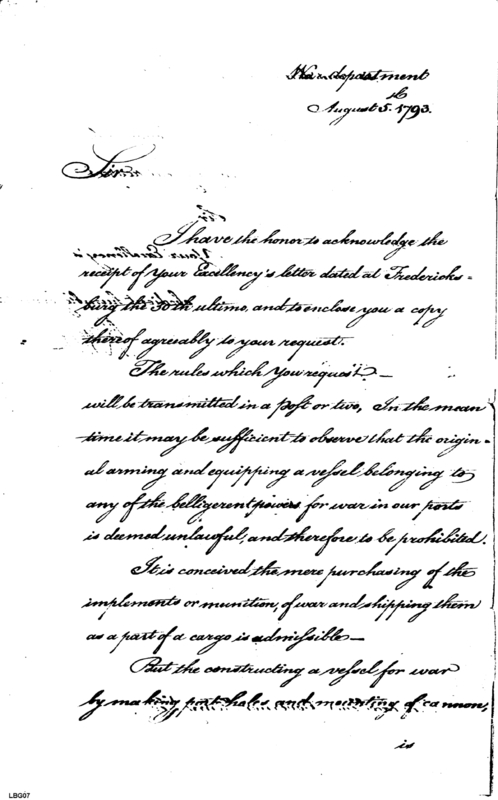 War department
August 5.th 1793.
Sir
I have the honor to acknowledge the
receipt of your Excellency's letter dated at Fredericks=
burg the 30th ultimo, and to enclose you a copy
thereof agreeably to your request.
The rules which you request —
will be transmitted in a post or two, In the mean
time it may be sufficient to observe that the origin=
al arming and equipping a vessel belonging to
any of the belligerent powers for war in our ports
is deemed unlawful, and therefore to be prohibited.
It is conceived the mere purchasing of the
implements or munition, of war and shipping them
as a part of a cargo is admissible —
But the constructing a vessel for war
by making port holes and mounting of cannon,
is
LBG07